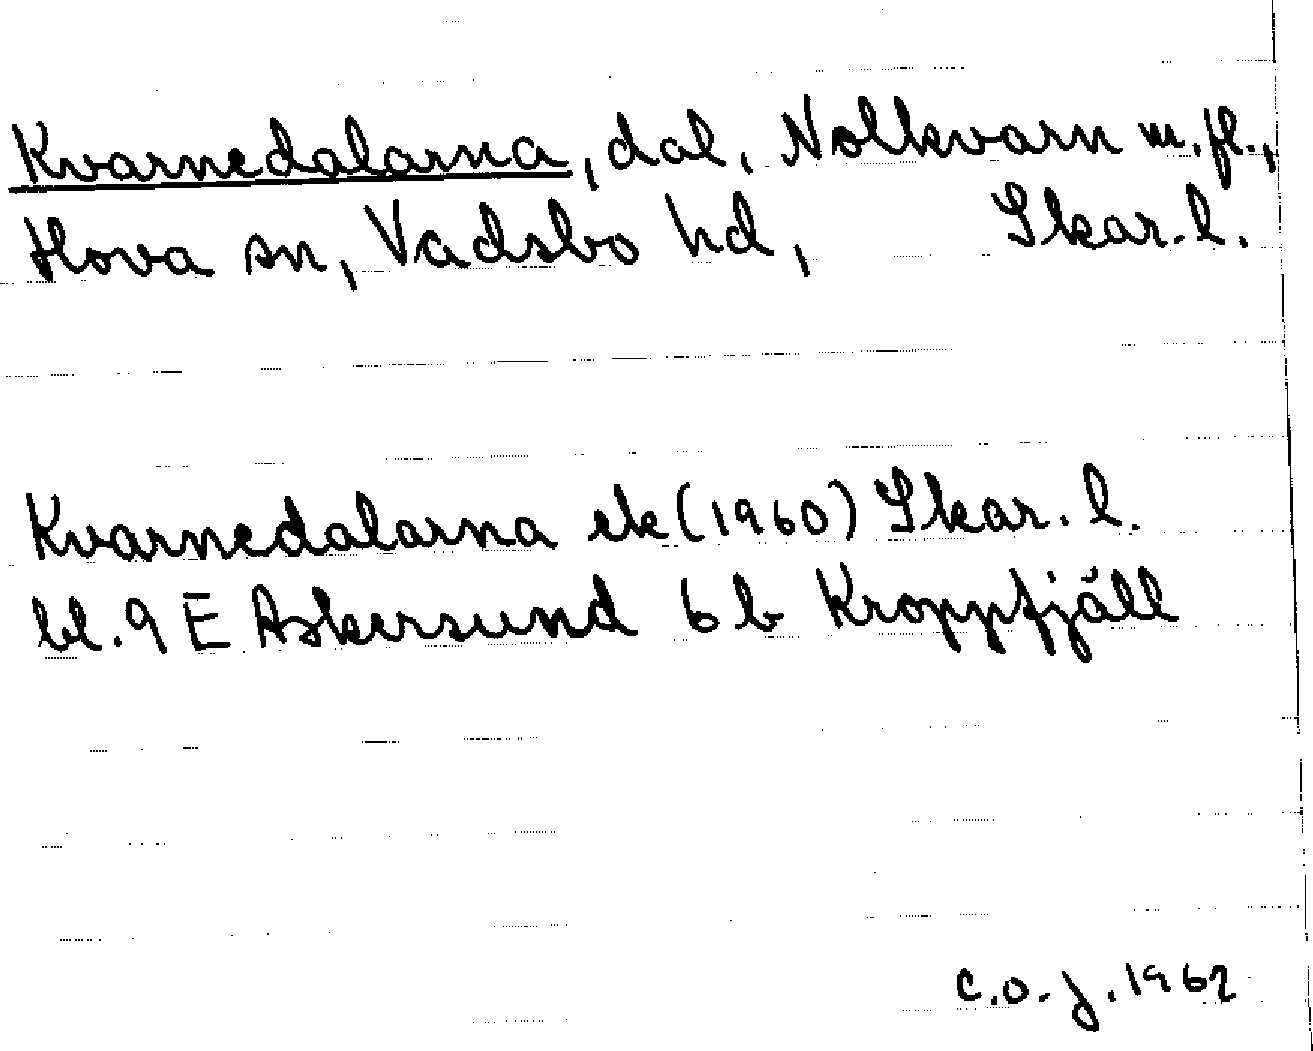 Kvarnedalarna, dal, Nolkvarn m.fl.,
Hova sn, Vadsbo hd, Skar. l.
Kvarnedalarna ek (1960) Skar. l.
bl. 9 E Askersund 6 b Kroppfjäll
C.O.J. 1962